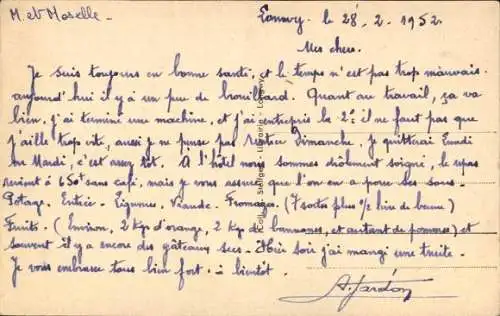 M. et Moselle.
Longwy. le 28. 2. 1952.
Mes chers.
Je suis toujours en bonne santé, et le temps n'est pas trop mauvais.
aujourd'hui il y a un peu de brouillard. Quant au travail, ça va
bien, j'ai terminé une machine, et j'ai entrepris la 2e il ne faut pas que
j'aille trop vite, aussi je ne pense pas rentrer Dimanche. Je quitterai Lundi
ou Mardi, c'est assez tôt. A l'hôtel nous sommes drôlement soigné, le repas
revient à 450f sans café, mais je vous assure que l'on en a pour ses sous.
Potage. Entrée. Légumes, Viande. Fromages. (7 sortes plus 1/2 livre de beurre)
Fruits. (Environ, 2 kg d'orange, 2 kg de bannanes, et autant de pommes) et
souvent il y a encore des gâteaux secs. Hier soir j'ai mangé une truite.
Je vous embrasse tous bien fort. à bientôt.
A. Jardon